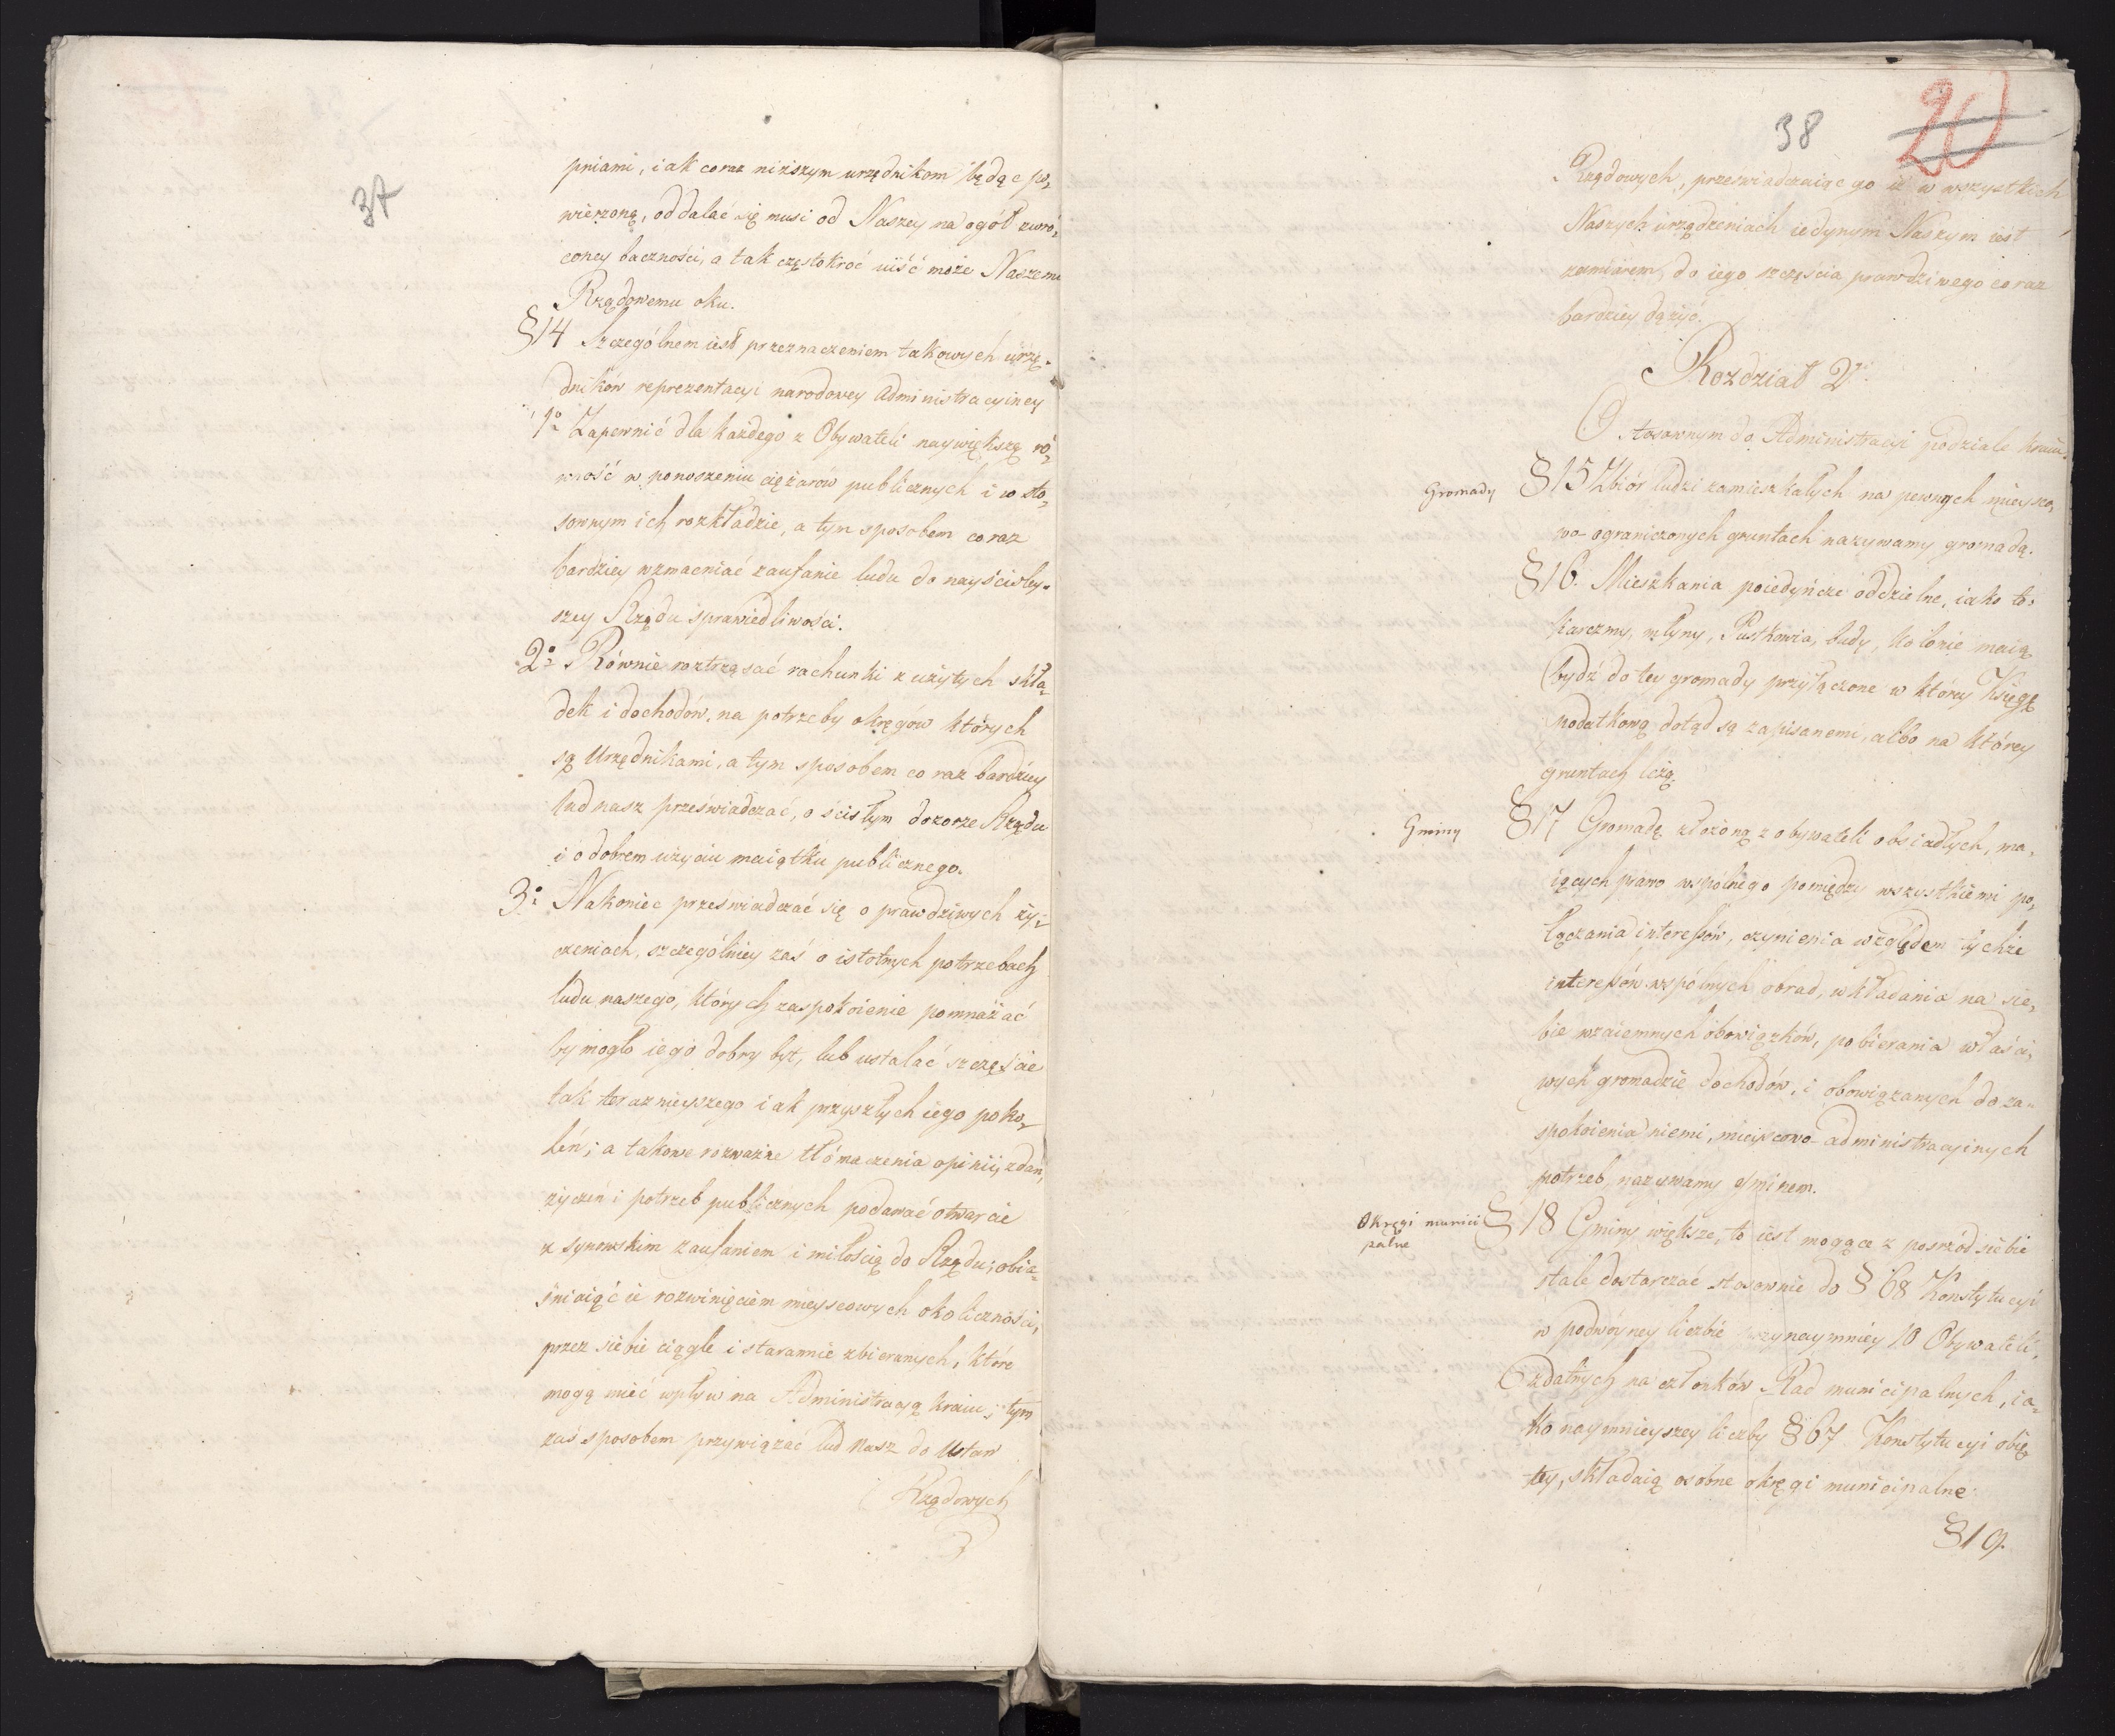 37
pniami, iak coraz niższym urzędnikom będąc po,
wierzoną, oddalać się musi od Naszey na ogół zwró,
coney baczności, a tak częstokroć uiść może Naszemu
Rządowemu oku.
§14 Szczególnem iest przeznaczeniem takowych urzę,
dników reprezentacyi narodowey Administracyiney
1o Zapewnić dla każdego z Obywateli naywiększą ró,
wność w ponoszeniu ciężarów publicznych i w sto,
sownym ich rozkładzie, a tym sposobem coraz
bardziey wzmacniać zaufanie ludu do nayściśley,
szey Rządu sprawiedliwości.
2o Równie roztrząsać rachunki z użytych skła,
dek i dochodów, na potrzeby okręgów których
są Urzędnikami, a tym sposobem co raz bardziey
lud nasz przeświadczać, o ścisłym dozorze Rządu
i o dobrem użyciu maiątku publicznego.
3o Nakoniec przeświadczać się o prawdziwych ży,
czeniach, szczególniey zaś o istotnych potrzebach
ludu naszego, których zaspokoienie pomnażać
by mogło iego dobry byt, lub ustalać szczęście
tak teraznieyszego iak przyszłych iego poko,
leń; a takowe rozważne tłómaczenia opinii, zdań,
życzeń i potrzeb publicznych podawać otwarcie
z synowskim zaufaniem i miłością do Rządu; obia,
śniaiąć ie rozwinięciem mieyscowych okoliczności,
przez siebie ciągle i starannie zbieranych, które
mogą mieć wpływ na Administracyą kraiu; tym
zaś sposobem przywiązać lud Nasz do Ustaw
Rządowych
38
20
Rządowych, przeświadczaiąc go iż w wszystkich
Naszych urządzeniach iedynym Naszym iest
zamiarem, do iego szczęścia prawdziwego coraz
bardziey dążyć.
Rozdział 2gi
O stosownym do Administracyi podziale kraiu.
Gromady §15 Zbiór ludzi zamieszkałych na pewnych mieysco,
wo-ograniczonych gruntach nazywamy gromadą.
§16. Mieszkania poiedyńcze oddzielne, iako to:
karczmy, młyny, Pustkowia, budy, kolonie maią
bydź do tey gromady przyłączone w którey Księgę
podatkową dotąd są zapisanemi, albo na którey
gruntach leżą.
Gminy §17 Gromadę złożoną z obywateli obsiadłych, ma,
iących prawo wspólnego pomiędzy wszystkiemi po,
łączania interessów, czynienia względem tychże
interessów wspólnych obrad, wkładania na sie,
bie wzaiemnych obowiązków, pobierania właści,
wych gromadzie dochodów, i obowiązanych do za,
spokoienia niemi, mieiscowo-administracyinych
potrzeb, nazywamy gminem.
Okręgi munici §18 Gminy większe, to iest mogące z pośród siebie
palne
stale dostarczać stosownie do §68 Konstytucyi
w podwóyney liczbie przynaymniey 10 Obywateli,
zdatnych na członków Rad municipalnych, ia,
ko naymnieyszey liczby §67 Konstytucyi obię
tey, składaią osobne okręgi municipalne.
§19.